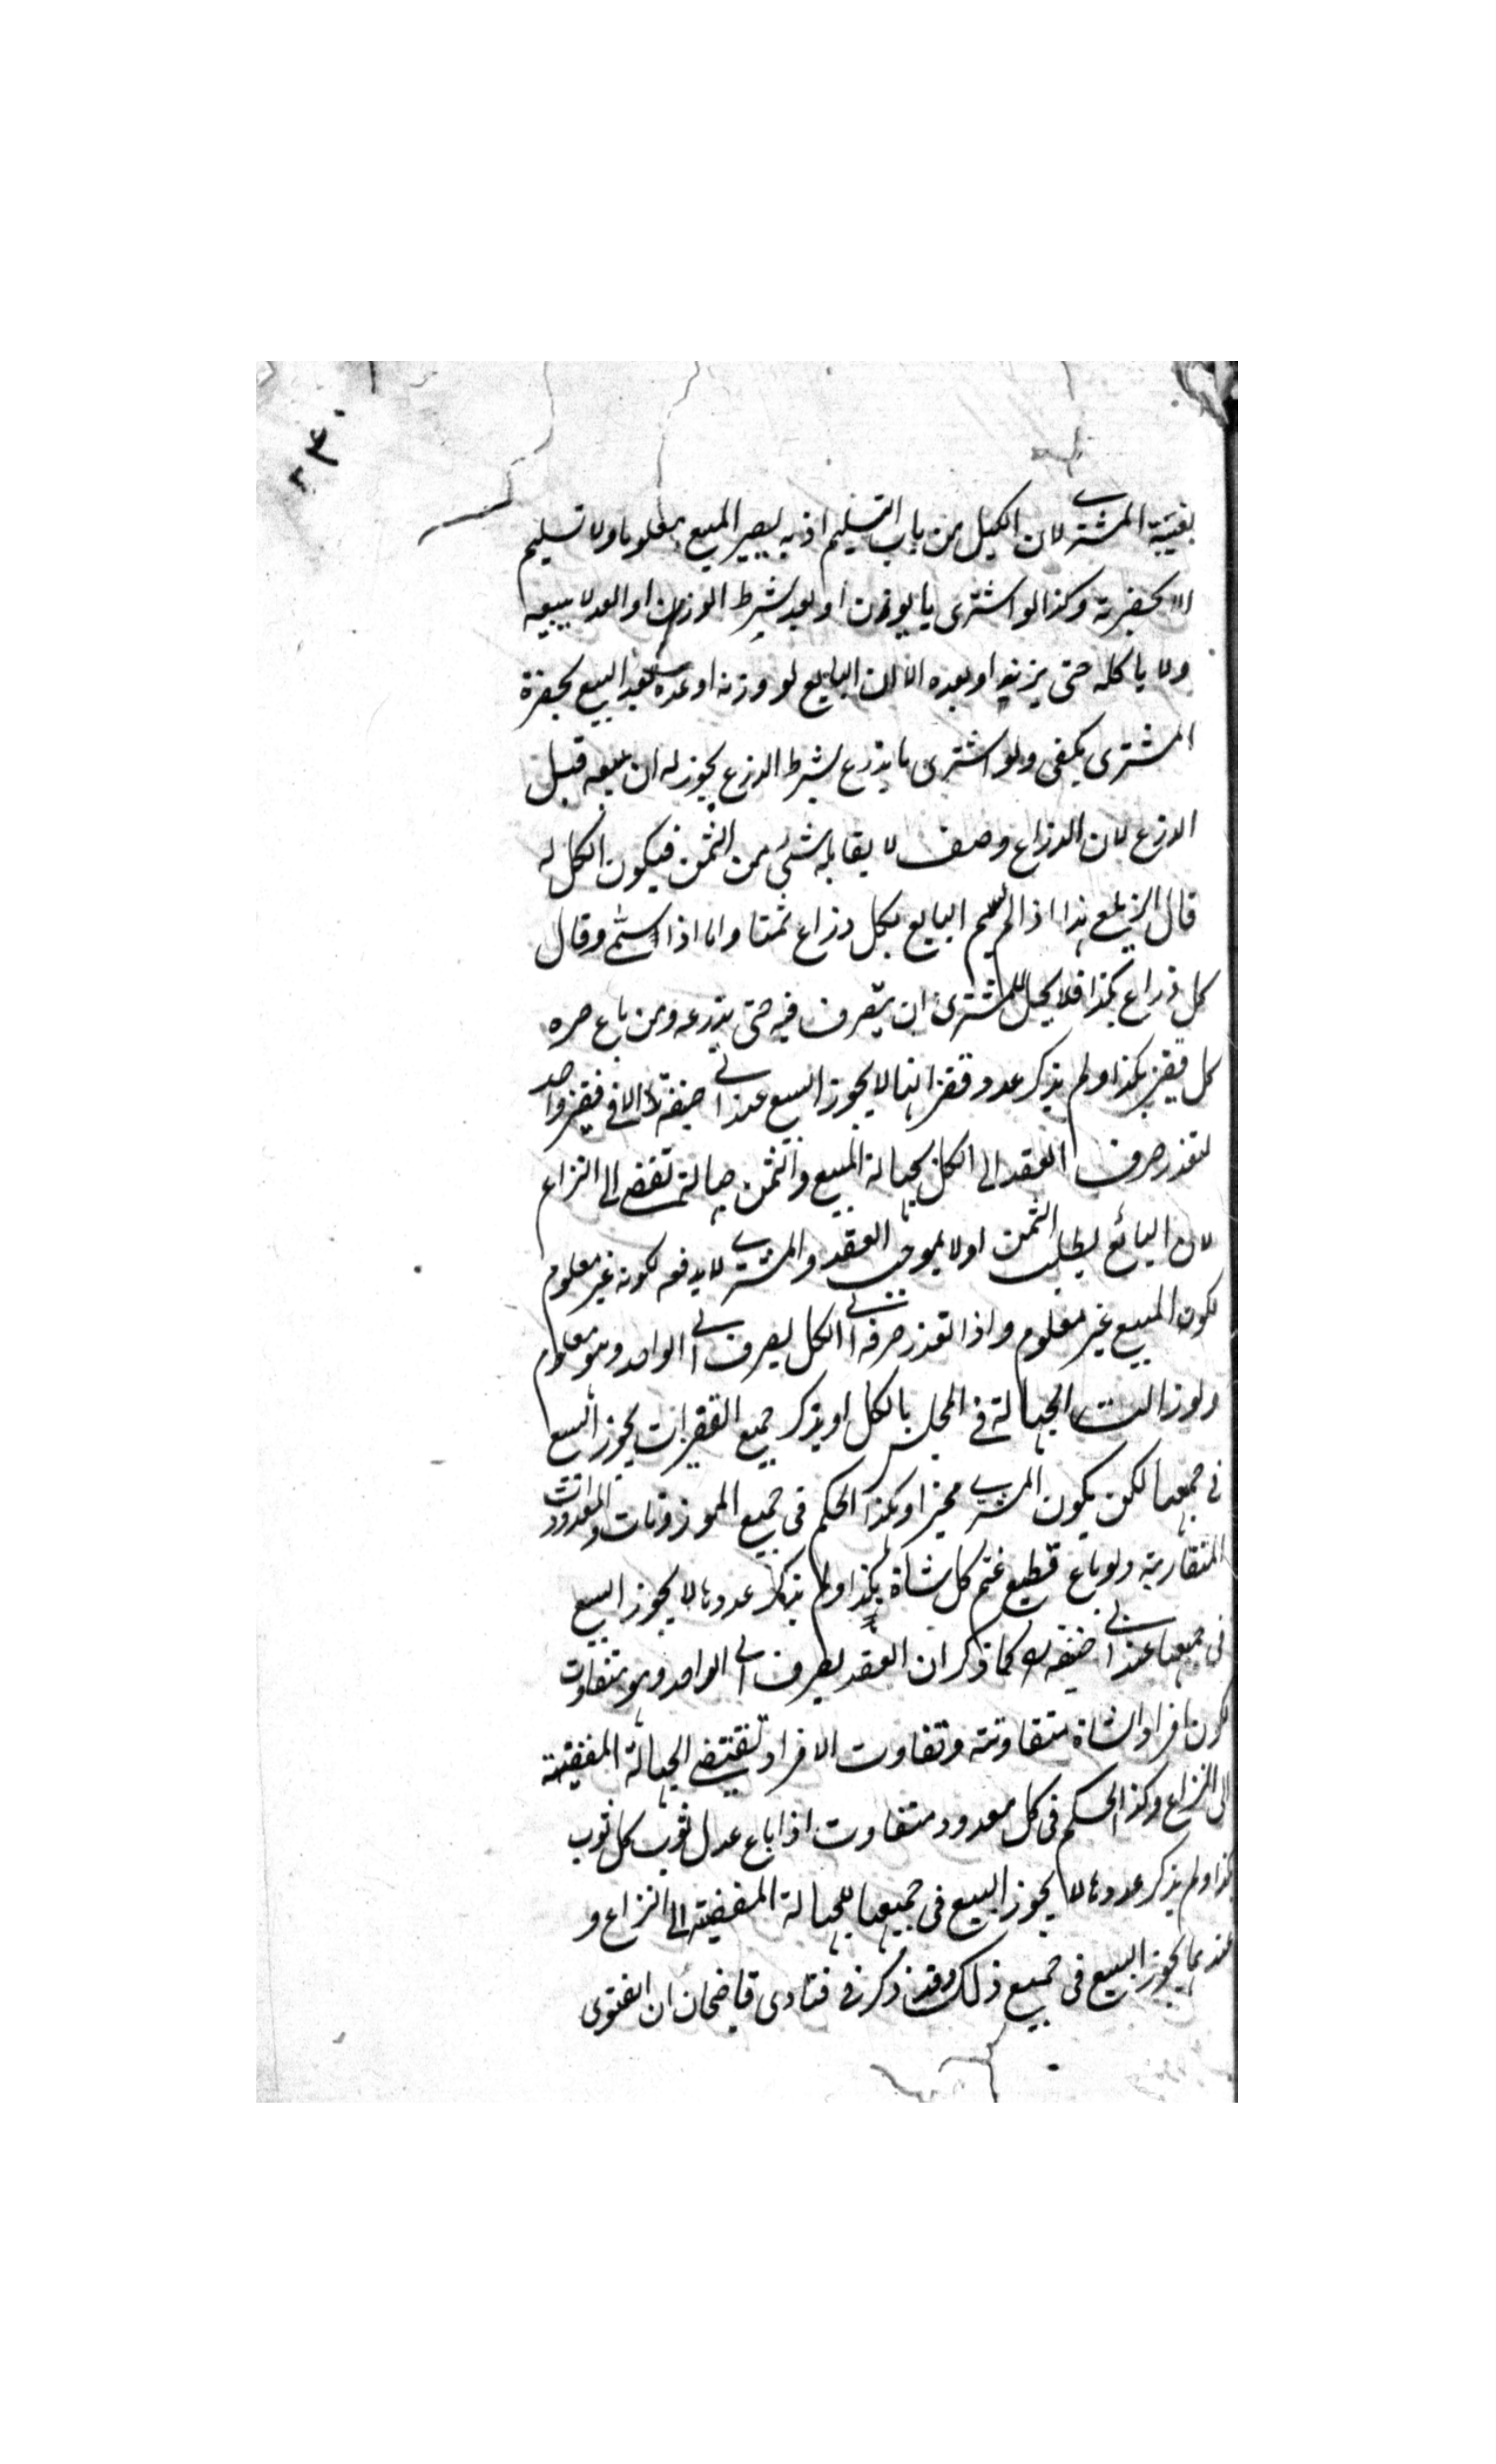 ٣٠
بغيبة المشتري لان الكيل من باب التسليم اذ به يصير المبيع معلوما ولا تسليم
الا بحضرته وكذا لو اشترى ما يوزن او يعد بشرط الوزن او العد لا يبيعه
ولا ياكله حتى يزنه او يعده الا ان البايع لو وزنه او عده بعد البيع بحضرة
المشترى يكفى ولو اشترى ما يذرع بشرط الذرع يجوز له ان يبيعه قبل
الذرع لان الذراع وصف لا يقابله شئ من الثمن فيكون الكل له
قال الزيلعى هذا اذا لم يسم البايع لكل ذراع ثمنا واما اذا سمى وقال
كل ذراع بكذا فلا يحل للمشترى ان يتصرف فيه حتى يذرعه ومن باع صبره
كل قفيز بكذا ولم يذكر عدد قفزانها لا يجوز البيع عند ابي حنيفة الا فى قفيز واحد
لتعذر صرف العقد الى الكل لجهالة المبيع والثمن جهالة تفضى الى النزاع
لان البائع يطلب الثمن اولا بموجب العقد والمشتري لا يدفعه لكونه غير معلوم
لكون المبيع غير معلوم واذا تعذر صرفه الى الكل يصرف الى الواحد وهو معلوم
ولو زالت الجهالة فى المجلس بالكيل او بذكر جميع القفيزات يجوز البيع
فى جميعها لكن يكون المشتري مخيرا وهكذا الحكم فى جميع الموزونات والمعدودات
المتقاربة ولو باع قطيع غنم كل شاة بكذا ولم يذكر عددها لا يجوز البيع
فى جميعها عند ابي حنيفه كما ذكر ان العقد يصرف الى الواحد وهو متفاوت
لكون افراد الشاة متفاوتة وتفاوت الافراد تقتضى الجهالة المفضية
الى النزاع وكذا الحكم فى كل معدود متفاوت اذا باع عدل ثوب كل ثوب
بكذا ولم يذكر عددها لا يجوز البيع فى جميعها للجهالة المفضية الى النزاع و
عندهما يجوز البيع فى جميع ذلك وقد ذكر فى فتاوى قاضيخان ان الفتوى